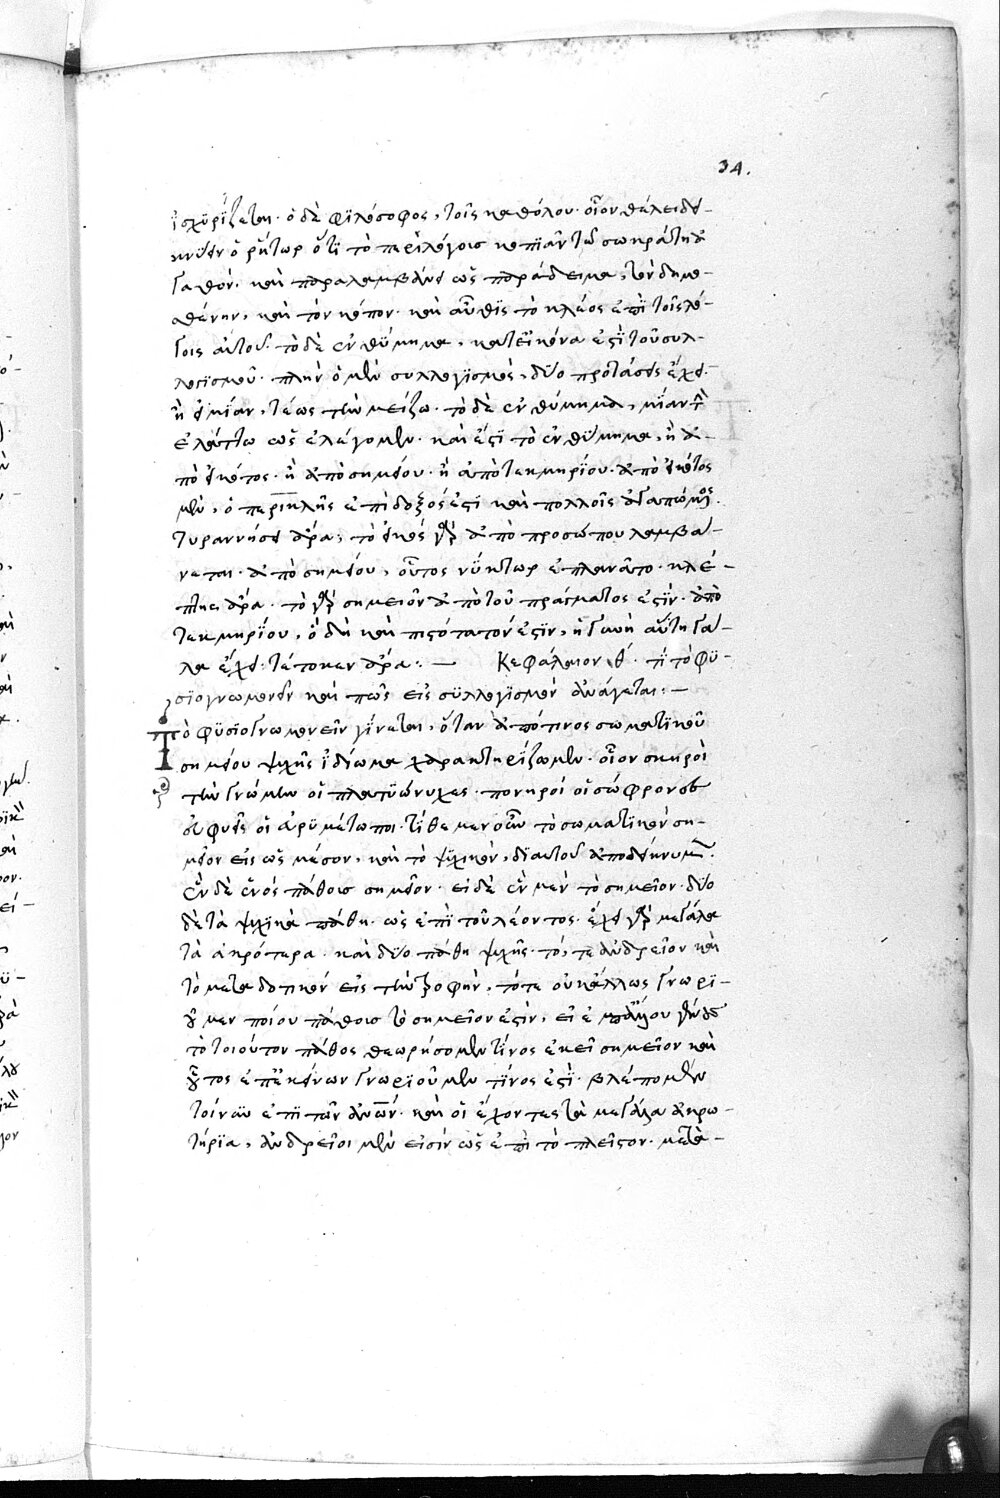 34.
ἰσχϋρίζεται· ὁ δὲ φϊλόσοφος, τοῖς καθόλου· οἷον θέλει δει-
κνύειν ὁ ῥήτωρ ὅτϊ τὸ περὶ λόγοισ κοπϊᾶν τῶ σωκράτη ἀ-
γαθόν· καὶ παραλαμβάνει ὡς παράδειγμα, τὸν δημο-
σθένην, καὶ τὸν κόπον· καὶ αὖθϊς τὸ κλέος ἐπὶ τοῖς λό-
γοις αὐτοῦ· τὸ δὲ ἐνθύμημα, κατ εἰκόνα ἐστὶ τοῦ συλ-
λογϊσμοῦ· πλὴν ὁ μὲν συλλογϊσμὸς, δύο προτάσεις ἔχει·
ἢ εἰ μίαν, τέως τὴν μείζω· τὸ δὲ ἐνθύμημα, μίαν τὴν
ἐλάττω ὡς ἐλέγομεν· καὶ ἔστϊ τὸ ἐνθύμημα, ἢ ἀ-
πὸ εἰκότος· ἢ ἀπὸ σημείου· ἢ ἀπὸ τεκμηρίου· ἀπὸ εἰκότος
μὲν, ὁ περικλῆς ἐπίδοξός ἐστὶ καὶ πολλοῖς ἀγαπώμενος·
τυραννήσει ἄρα, τὸ εἰκὸς γὰρ ἀπὸ προσώπου λαμβά-
νεται· ἀπὸ σημείου, οὗτος νύκτωρ ἐπλανᾶτο· κλέ-
πτης ἄρα· τὸ γὰρ σημεῖον ἀπὸ τοῦ πράγματος ἐστὶν· ἀπὸ
τεκμηρίου, ὁ δὴ καὶ πιστότατόν ἐστϊν, ἡ γυνὴ αὕτη γά-
λα ἔχει· τέτοκεν ἄρα:— Κεφάλαιον θ΄. τί τὸ φϋ-
σϊογνωμονεῖν καὶ πῶς εἰς σϋλλογϊσμὸν ἀνάγεται:—
Τὸ φϋσϊογνωμονεῖν γίνεται, ὅταν ἀπό τινος σωματϊκοῦ
σημείου ψυχῆς ἰδίωμα χαρακτηρίζωμεν· οἷον σκηροὶ
τὴν γνώμην οἱ πλατϋώνυχες· πονηροί οἱ σώφρονες
εὐφυεῖς οἱ εὐρϋμέτωποι· τίθεμεν οὖν τὸ σωματϊκὸν ση-
μεῖον εἰς ὡς μέσον, καὶ τὸ ψϋχϊκὸν, δϊ αὐτοῦ ἀποδείκνυμεν·
ἓν δὲ ἑνὸς πάθοισ σημεῖον· εἰ δὲ ἓν μὲν τὸ σημεῖον· δύο
δὲ τὰ ψυχϊκὰ πάθη· ὡς ἐπὶ τοῦ λέοντος· ἔχει γὰρ μεγάλα
τὰ ἀκρότερα· καὶ δύο πάθη ψυχῆς· τό, τε ἀνδρεῖον καὶ
τὸ μεταδοτικὸν εἰς τὴν τροφὴν, τότε οὐκ ἄλλως γνωρι-
οῦμεν ποίου πάθοισ τὸ σημεῖον ἐστὶν, εἰ ἐπ' ἄλλου γένους
τὸ τοιοῦτον πάθος θεωρήσομεν τίνος ἐκεῖ σημεῖον καὶ
οὕτος ἐπ' ἐκείνων γνωρϊοῦμεν τίνος ἐστὶ· βλέπομεν
τοίνυν ἐπὶ τῶν ἀνων· καὶ οἱ ἔχοντες τὰ μεγάλα ἀκρω-
τήρϊα, ἀνδρεῖοι μὲν εἰσὶν ὡς ἐπὶ τὸ πλεῖστον· μετα-